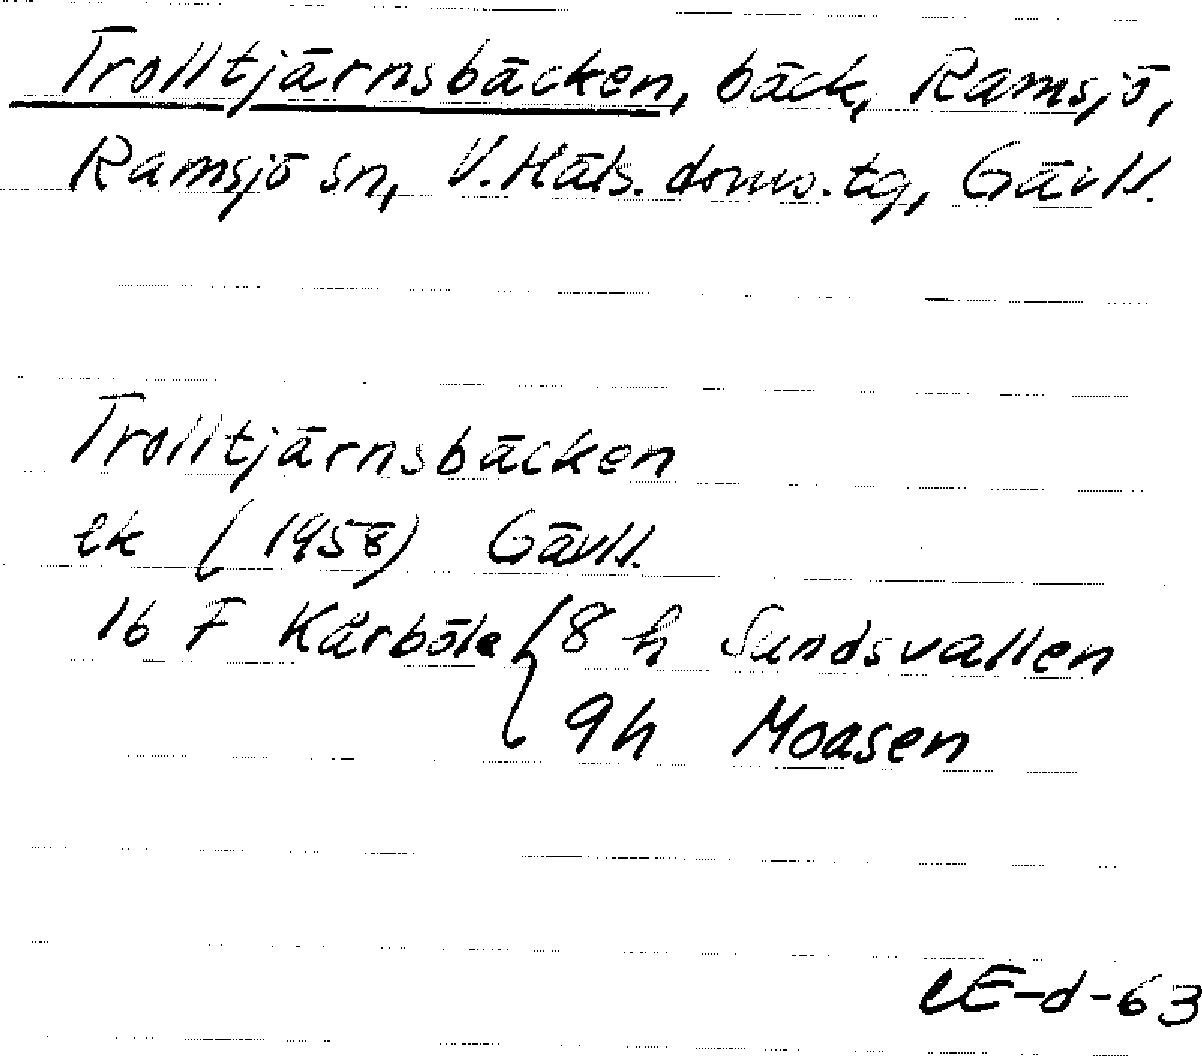 Trolltjärnsbäcken, bäck, Ramsjö,
Ramsjö sn, V. Häls. doms. tg, Gävll.
Trolltjärnsbäcken
ek (1958) Gävll.
16 F Kårböle { 8 h Sundsvallen
9h Moasen
-d-63